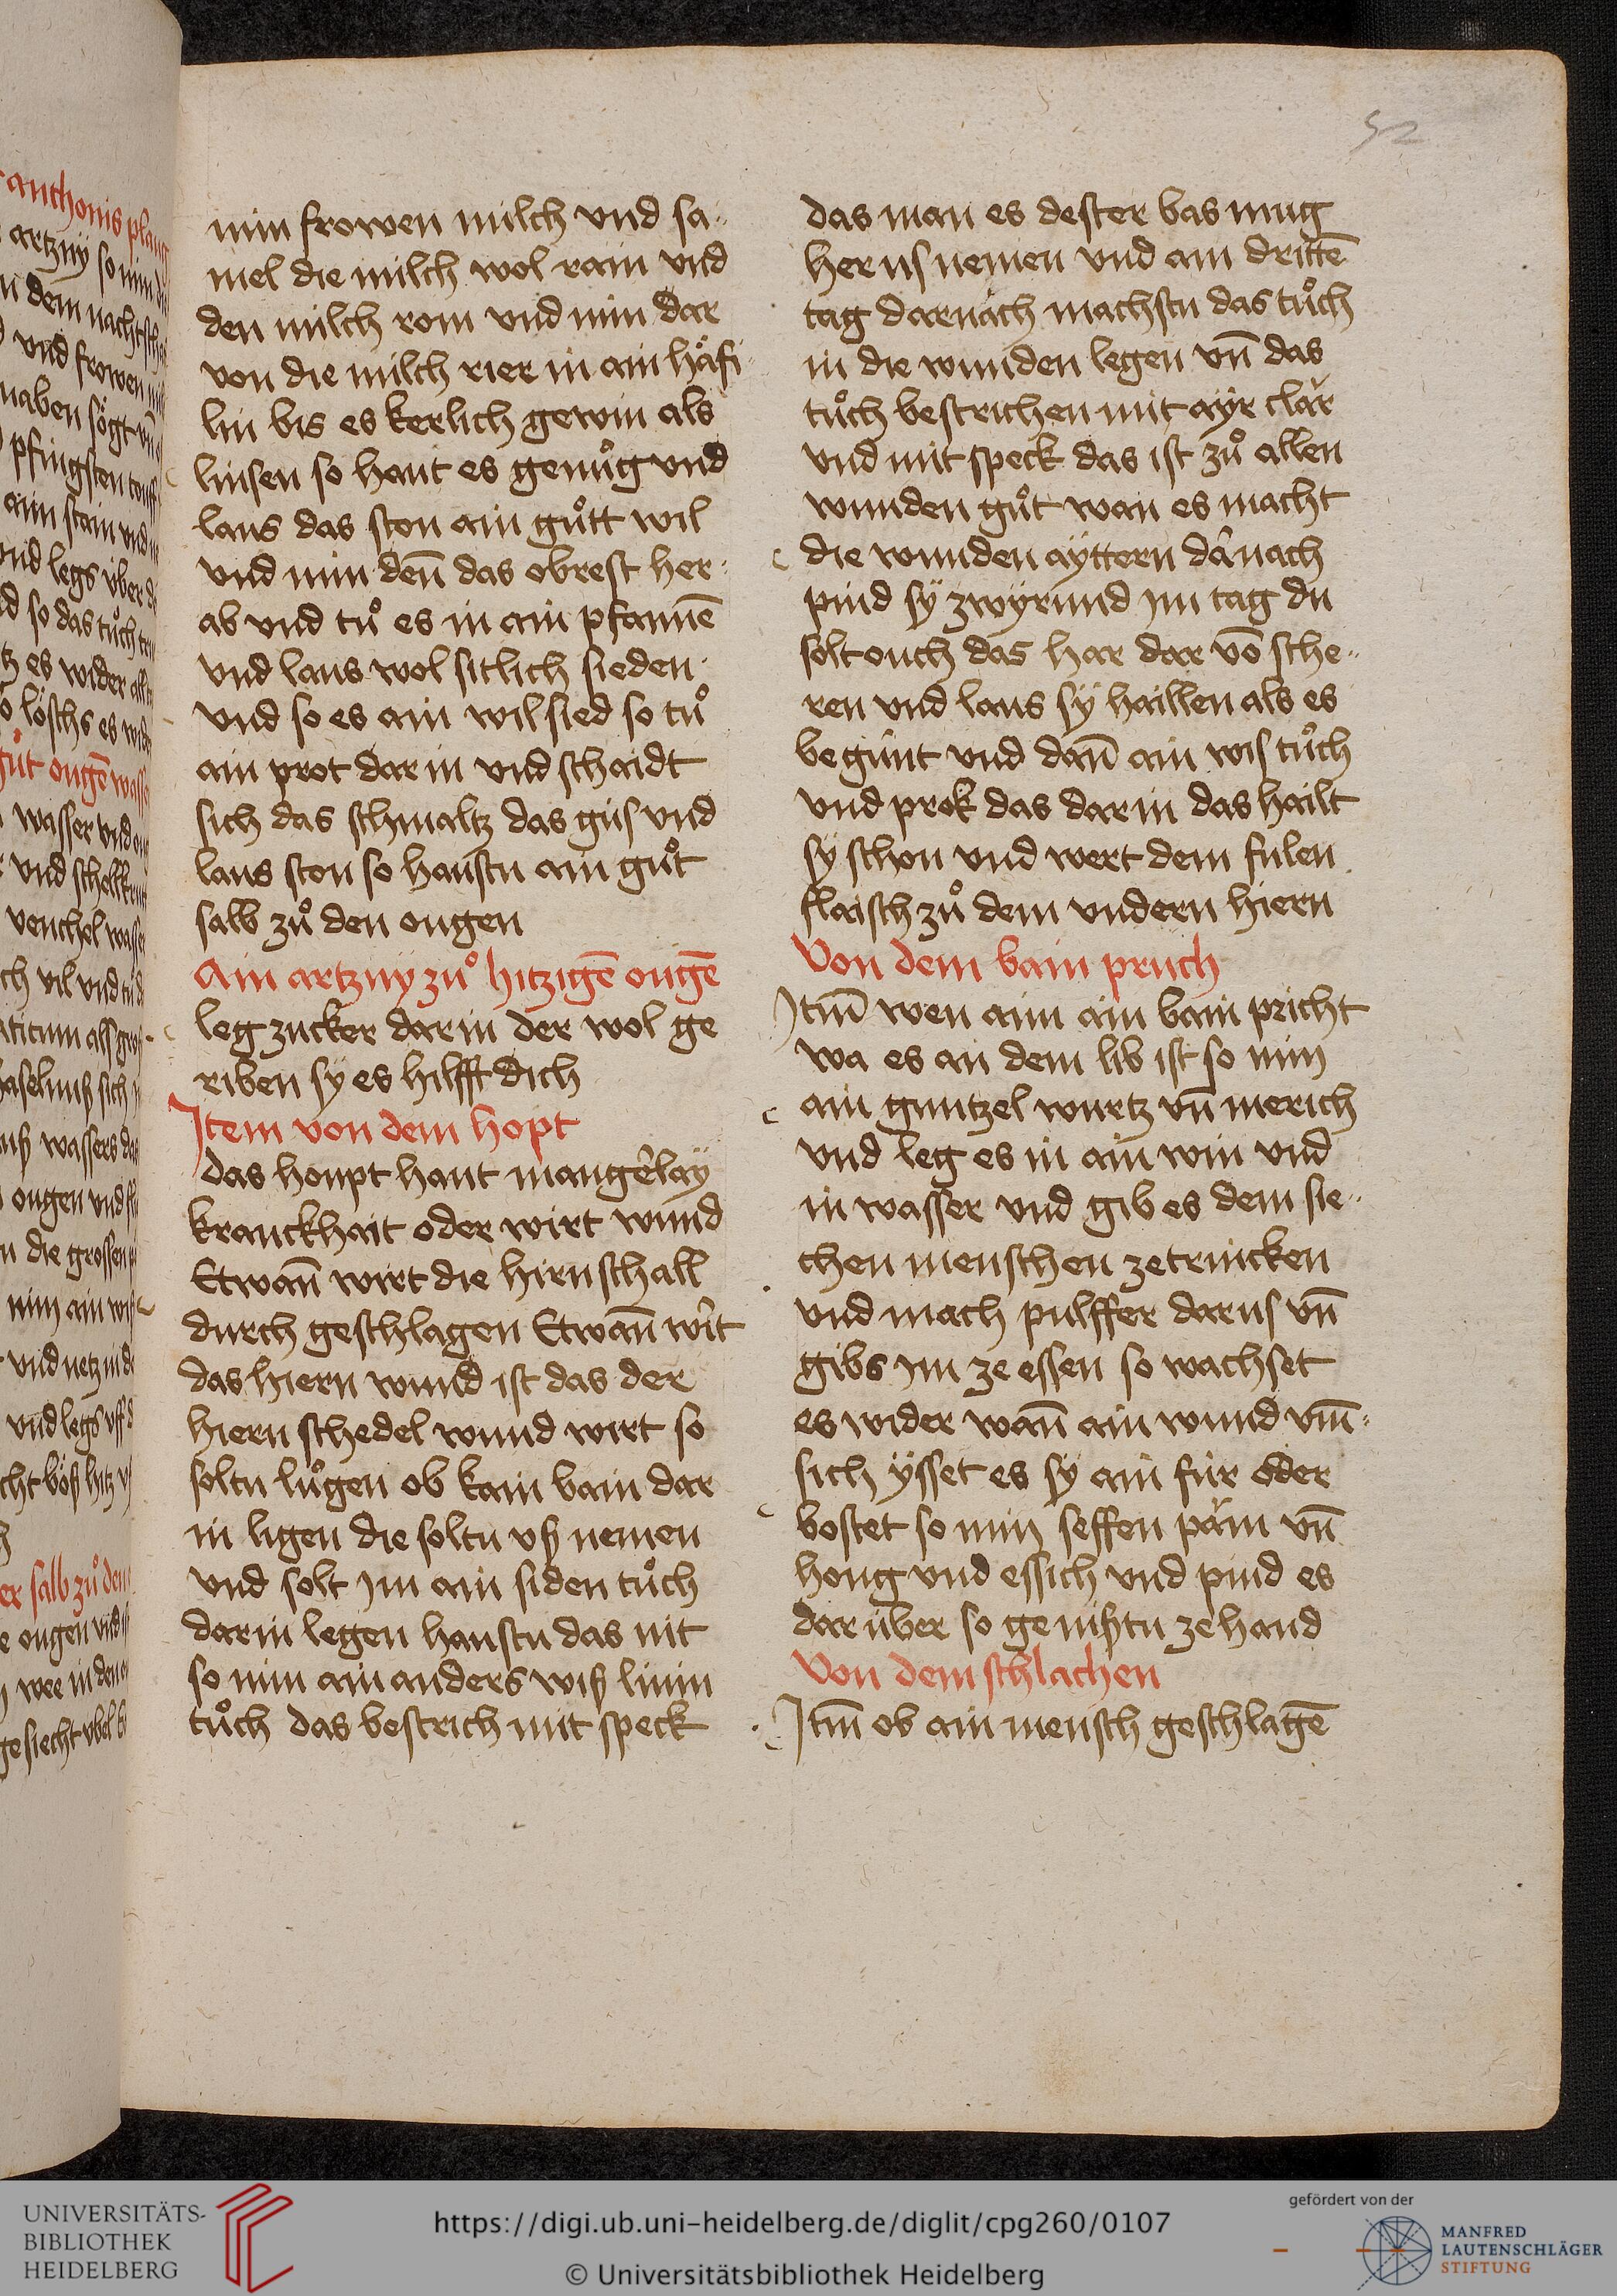 52
nim frowen milch vnd sa-
mel die milch wol rain vnd
den milch rom vnd nim dar
von die milch rier in ain häfi
lin bis es kerlich gewin als
linsen so haut es genuͦg vnd
laus das ston ain guͦtt wil
vnd nim deñ das obrest her-
ab vnd tuͦ es in ain pfannē
vnd laus wol sitlich sieden
vnd so es ain wil sied so tuͦ
ain prot dar in vnd schaidt
sich das schmaltz das gus vnd
laus ston so haustu ain guͦt
salb zuͦ den ougen
Ain artzny zuͦ hitzigē ougē
leg zucker dar in der wol ge
riben sy es hilfft dich
Item von dem hopt
das houpt haut mangerlaÿ
kranckhait oder wirt wund
Etwañ wirt die hirnschall
durch geschlagen Etwañ wirt
das hiern wund ist das der
hiern schedel wund wirt so
soltu luͦgen ob kain bain dar
in ligen die soltu vß nemen
vnd solt im ain siden tuͦch
dar in legen haustu das nit
so nim ain anders wiß linin
tuͦch das bestrich mit speck
das man es dester bas mug
her us nemen vnd am drittē
tag darnach machstu das tuͦch
in die wunden legen vñ das
tuͦch bestrichen mit aÿr clar
vnd mit speck das ist zuͦ allen
wunden guͦt wan es macht
die wunden aÿttern dar nach
pind sÿ zwÿrund im tag du
solt ouch das har dar vō sche-
ren vnd laus sÿ haillen als es
begunt vnd dañ ain wis tuͦch
vnd prok das dar in das hailt
sÿ schon vnd wert dem fulen
flaisch zuͦ dem vndern hiern
Von dem bain pruch
Itm̄ wen aim ain bain pricht
wa es an dem lib ist so nim
ain guntzel wurtz vñ merich
vnd leg es in ain win vnd
in wasser vnd gib es dem sie-
chen menschen ze trincken
vnd mach pulffer dar us vñ
gibs im ze essen so wachset
es wider wañ ain wund vm̄-
sich ÿsset es sÿ ain für oder
bostet so nim seffen päm vñ
hong vnd essich vnd pind es
dar über so genißtu ze hand
Von dem schlachen
Itm̄ ob ain mensch geschlagē
UNIVERSITÄTS-
BIBLIOTHEK
HEIDELBERG
https://digi.ub.uni-heidelberg.de/diglit/cpg260/0107
© Universitätsbibliothek Heidelberg
gefördert von der
MANFRED
LAUTENSCHLÄGER
STIFTUNG